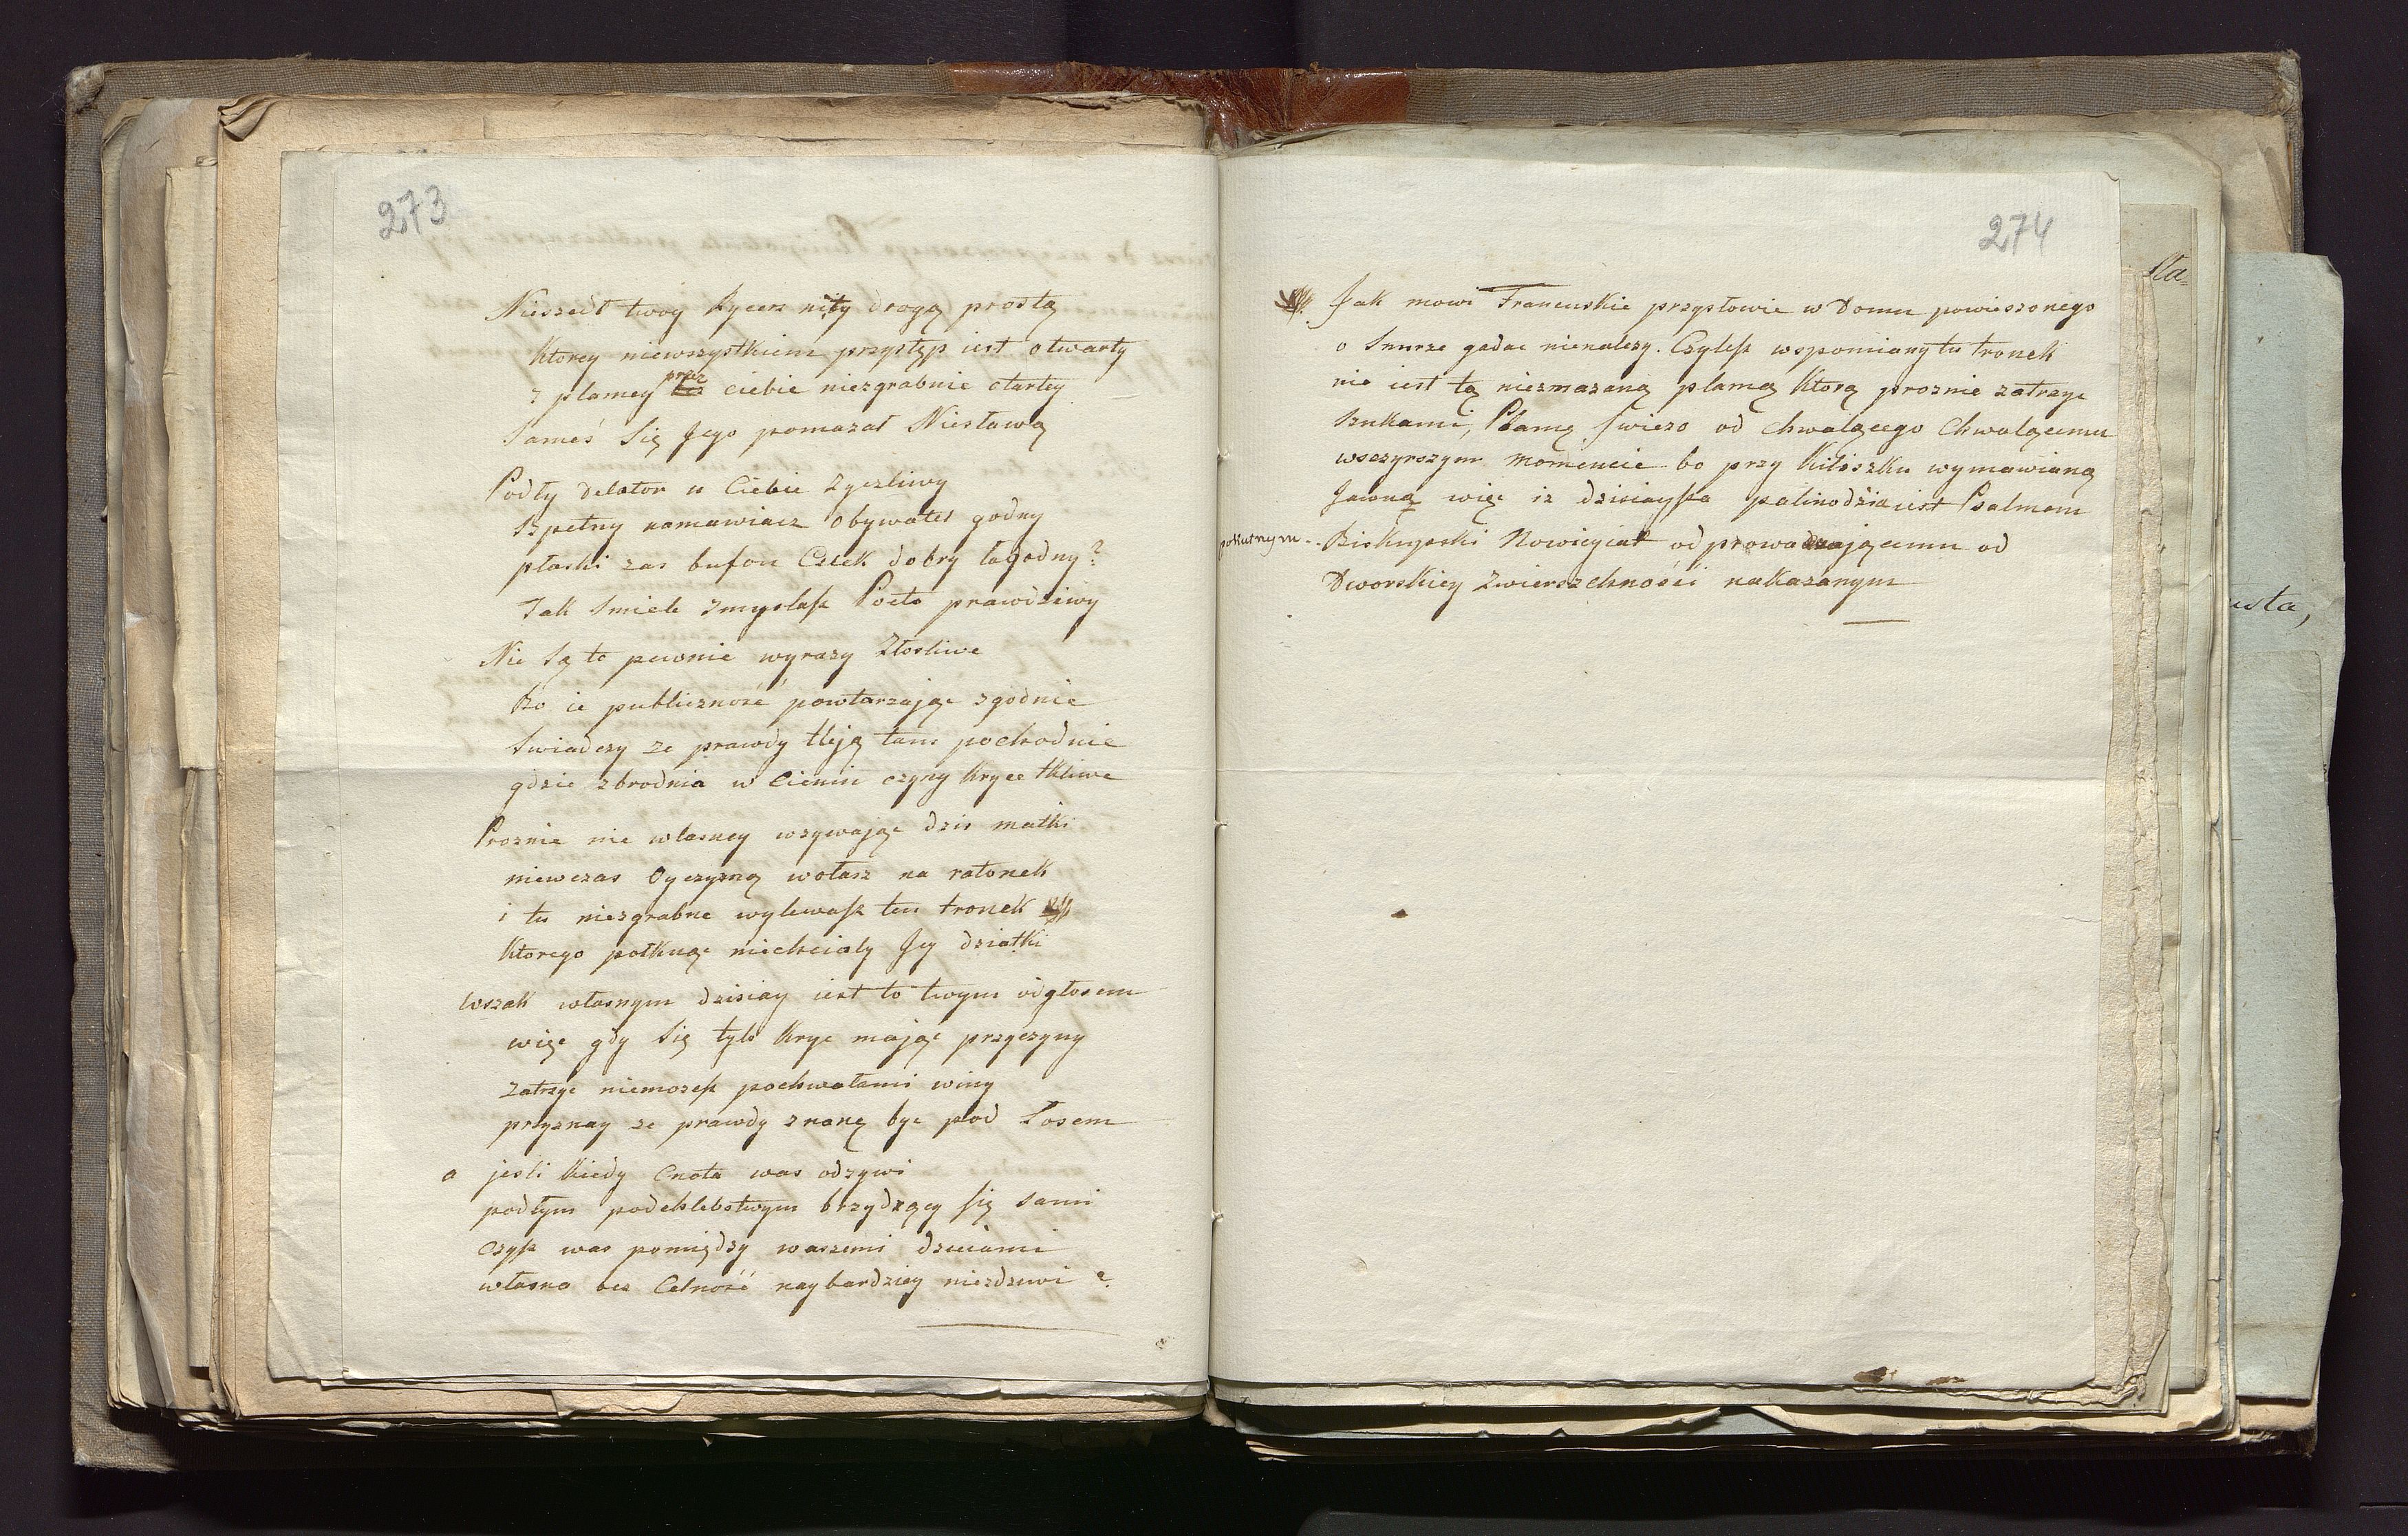 273
Nieszedł twoy Rycerz nity drogą prostą
Ktorey niewszystkiem przystęp iest otwarty
z plamey przez ciebie niezgrabnie otartey
Sameś Się Jego pomazał Niesławą
Podły delator u Ciebie zyczliwy
Szpetny namawiacz Obywatel godny
płaski zas bufon Człek dobry łagodny?
Jak Smiele zmyslasz Poeto prawdziwy
Nie Są to pewnie wyrazy Złosliwe
Bo ie publiczność powtarzając zgodnie
Swiadczy ze prawdy tleją tam pochodnie
gdzie zbrodnia w Cieniu czyny kryee tkliwe
Proznie nie własney wzywając dzis matki
niewczas Oyczyzną wołasz na ratonek
i tu niezgrabne wylewasz ten tronek
Ktorego połknąc niechciały Jey dziatki
Wszak własnym dzisiay iest to twym odgłosem
więc gdy Się tylo kryc mając przyczyny
Zatrzyc niemozesz pochwałami winy
przyznay ze prawdy znanę byc pod Losem
a jesli kiedy Cnota was odzywi
podłym podchlebstwym brzydzący się sami
Czysz was pomiędzy waszemi dzieciami
własna bez Celność naybardziey niezdziwi?
274
Jak mowi Francuskie przysłowie w Domu powieszonego
o Snurze gadac nienalezy. Czylisz wspomiany tu tronek
nie iest tą niezmazaną plamą Ktorą proznie zatrzyc
szukami, Plamą swiezo od chwalącego Chwalącemu
wszczyrszym momencie bo przy Kiliszku wymawianą
Jawną więc iz dzisiaysza palinodzia iest Psalmem
pokutnym - Biskupski Nowicyiat odprowadzającemu od
Dworskiey Zwierszchności nakazanym
sta,